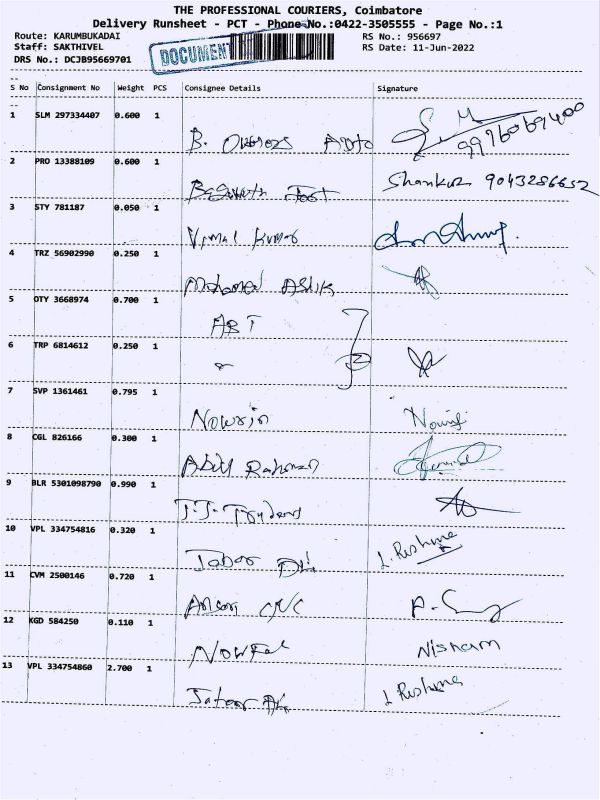 THE PROFESSIONAL COURIERS, Coimbatore
Delivery Runsheet - PCT - Phone No.:0422-3505555 - Page No.:1
Route: KARUMBUKADAI RS No.: 956697
Staff: SAKTHIVEL RS Date: 11-Jun-2022
DRS No.: DCJB95669701
DOCUMENT
S No Consignment No Weight PCS Consignee Details Signature
1 SLM 297334407 0.600 1
B. 9996069400
2 PRO 13388109 0.600 1
Shankar 9043286652
3 STY 781187 0.050 1
Vimal Kumar
4 TRZ 56902990 0.250 1
Mohamed Ashik
5 OTY 3668974 0.700 1
6 TRP 6814612 0.250 1
7 SVP 1361461 0.795 1
Nowrin
8 CGL 826166 0.300 1
Abdul Rahman
9 BLR 5301098790 0.990 1
10 VPL 334754816 0.320 1
L. Reshma
11 CVM 2500146 0.720 1
Ansari CNC
12 KGD 584250 0.110 1
Nowfal Nisham
13 VPL 334754860 2.700 1
L Reshma